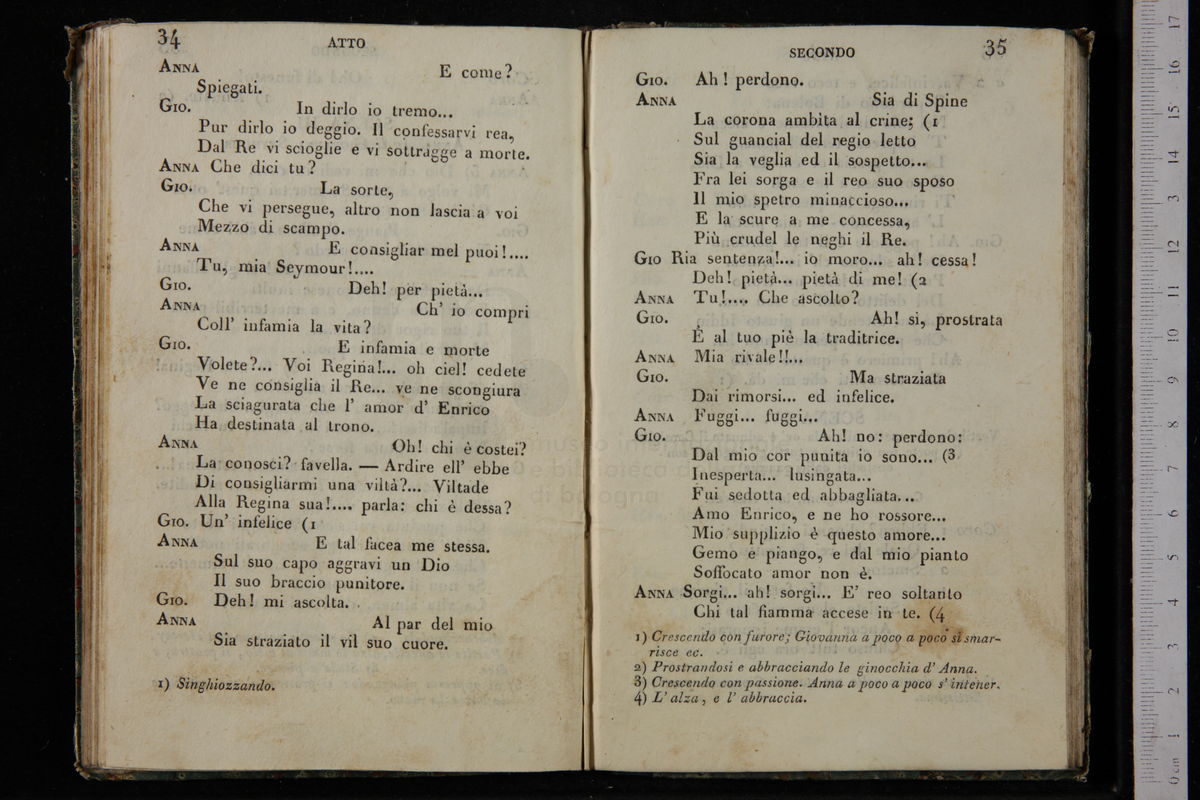 34
ATTO
ANNA E come?
Spiegati.
GIO. In dirlo io tremo...
Pur dirlo io deggio. Il confessarvi rea,
Dal Re vi scioglie e vi sottragge a morte.
ANNA Che dici tu?
GIO. La sorte,
Che vi persegue, altro non lascia a voi
Mezzo di scampo.
ANNA E consigliar mel puoi!....
Tu, mia Seymour!....
GIO. Deh! per pietà...
ANNA Ch' io compri
Coll' infamia la vita?
GIO. E infamia e morte
Volete?... Voi Regina!... oh ciel! cedete
Ve ne consiglia il Re... ve ne scongiura
La sciagurata che l' amor d' Enrico
Ha destinata al trono.
ANNA Oh! chi è costei?
La conosci? favella. — Ardire ell' ebbe
Di consigliarmi una viltà?... Viltade
Alla Regina sua!.... parla: chi è dessa?
GIO. Un' infelice (1
ANNA E tal facea me stessa.
Sul suo capo aggravi un Dio
Il suo braccio punitore.
GIO. Deh! mi ascolta.
ANNA Al par del mio
Sia straziato il vil suo cuore.
1) Singhiozzando.
SECONDO
35
GIO. Ah! perdono.
ANNA Sia di Spine
La corona ambita al crine; (1
Sul guancial del regio letto
Sia la veglia ed il sospetto...
Fra lei sorga e il reo suo sposo
Il mio spetro minaccioso...
E la scure a me concessa,
Più crudel le neghi il Re.
GIO Ria sentenza!... io moro... ah! cessa!
Deh! pietà... pietà di me! (2
ANNA Tu!.... Che ascolto?
GIO. Ah! si, prostrata
È al tuo piè la traditrice.
ANNA Mia rivale!!...
GIO. Ma straziata
Dai rimorsi... ed infelice.
ANNA Fuggi... fuggi...
GIO. Ah! no: perdono:
Dal mio cor punita io sono... (3
Inesperta... lusingata...
Fui sedotta ed abbagliata...
Amo Enrico, e ne ho rossore...
Mio supplizio è questo amore...
Gemo e piango, e dal mio pianto
Soffocato amor non è.
ANNA Sorgi... ah! sorgi... E' reo soltanto
Chi tal fiamma accese in te. (4
1) Crescendo con furore; Giovanna a poco a poco si smar-
risce ec.
2) Prostrandosi e abbracciando le ginocchia d' Anna.
3) Crescendo con passione. Anna a poco a poco s' intener.
4) L' alza, e l' abbraccia.